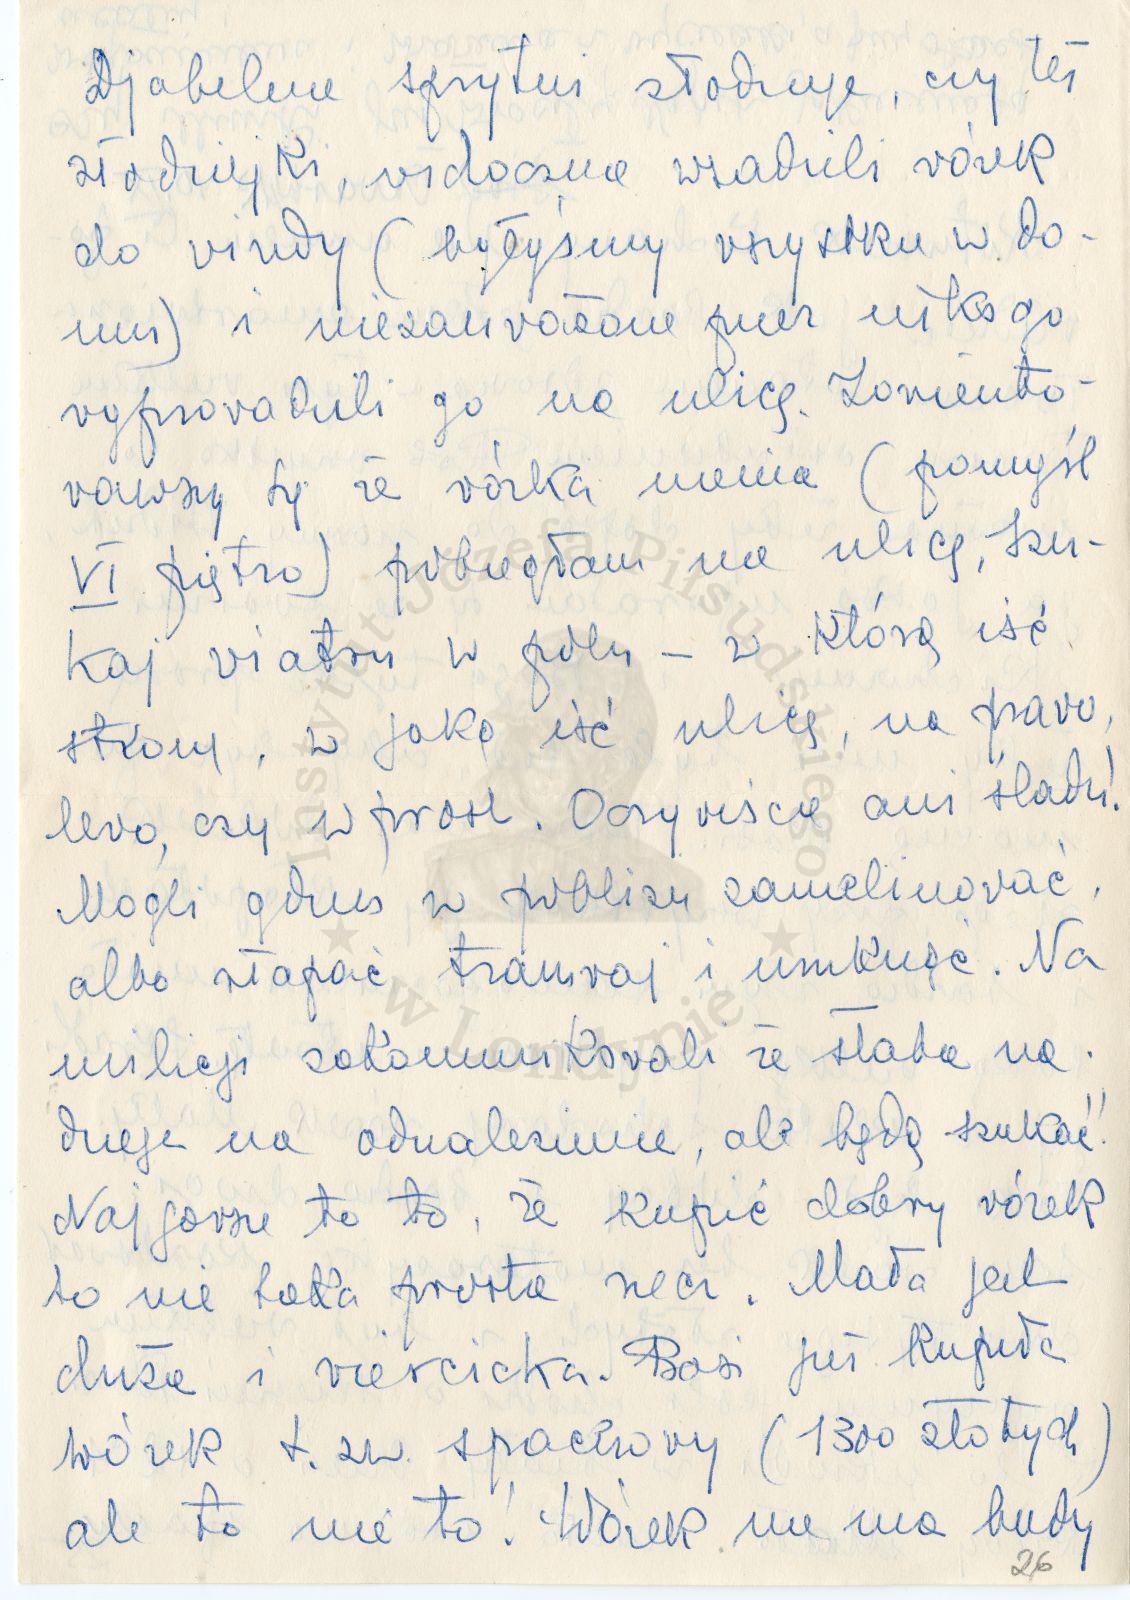 Djabelnie sprytni złodzieje, czy też
złodziejki, widocznie wsadzili wózek
do windy (byłyśmy wszystkie w do-
mu) i niezauważone przez nikogo
wyprowadzili go na ulicę. Zoriento-
wawszy się że wózka niema (pomyśl
VI piętro) pobiegłam na ulicę, szu-
kaj wiatru w polu – w którą iść
stronę, w jaką iść ulicę, na prawo,
lewo, czy wprost. Oczywiście ani śladu!
Mogli gdzieś w pobliżu zamelinować,
albo złapać tramwaj i umknąć. Na
milicji zakomunikowali że słaba na-
dzieja na odnalezienie, ale będą szukać!
Najgorsze to to, że kupić dobry wózek
to nie taka prosta rzecz. Mała jest
duża i wiercicka. Basi już kupiła
wózek t. zw. spacerowy (1300 złotych)
ale to nie to! Wózek nie ma budy
26
Instytut Józefa Piłsudskiego
w Londynie